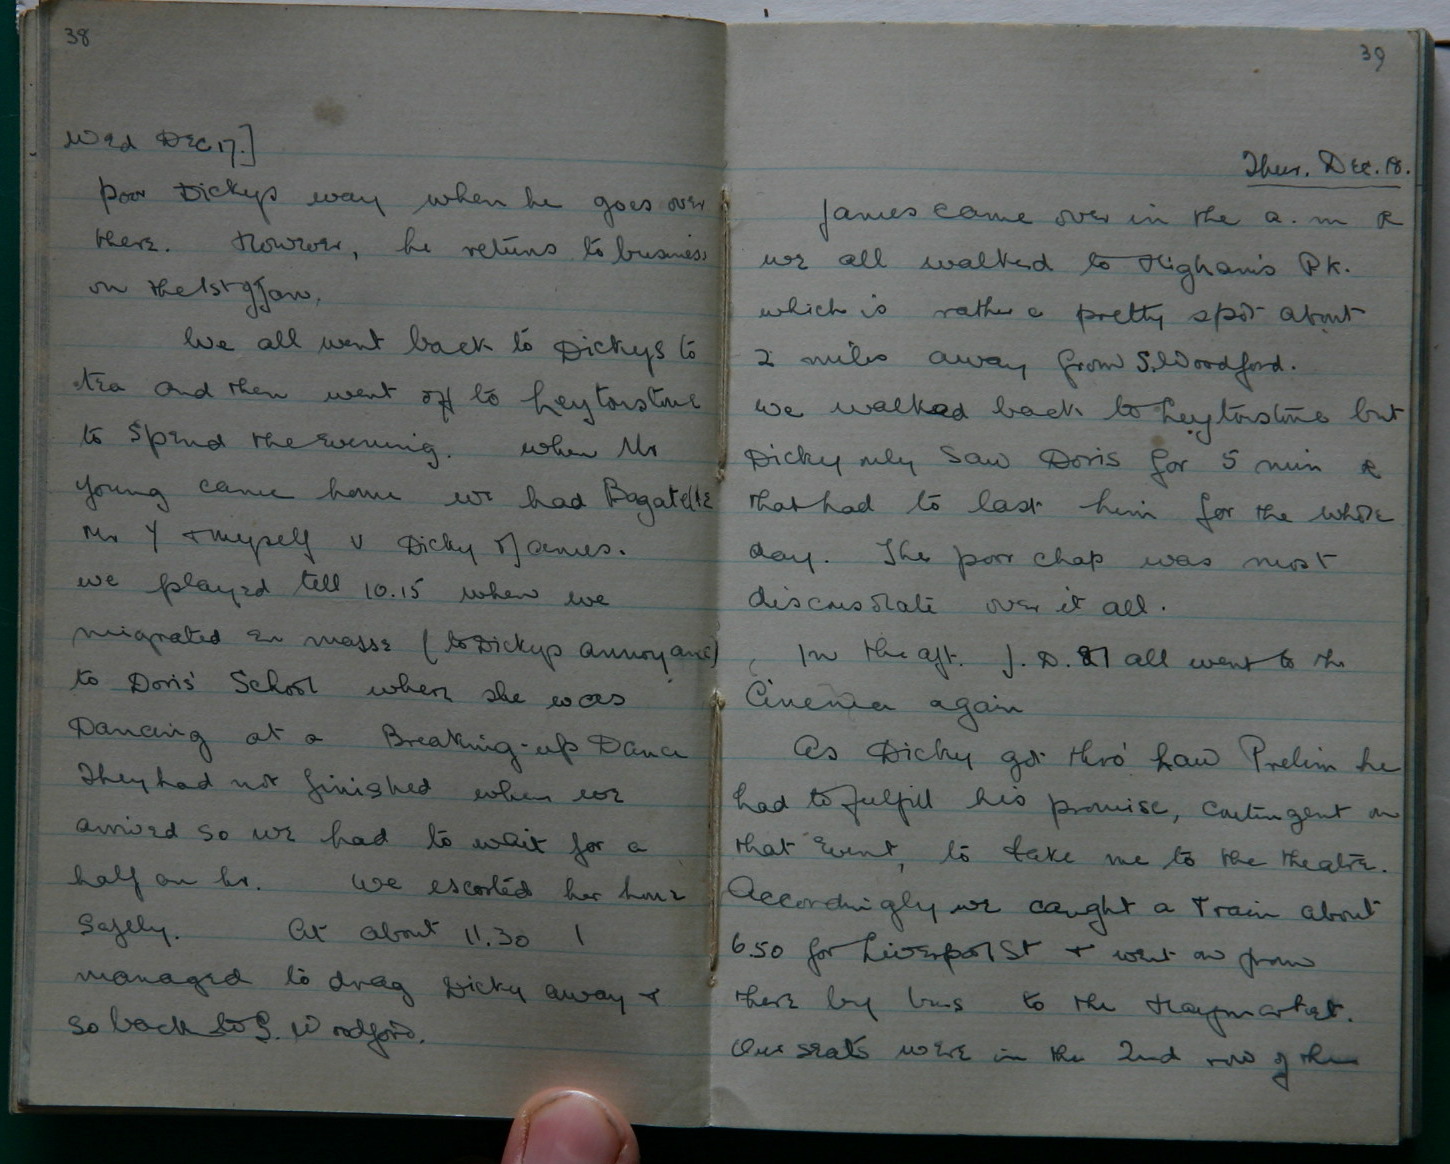 38
Wed Dec 17.]
poor Dickys way when he goes over
there. However, he returns to business
on the 1st of Jan.
We all went back to Dickys to
tea and then went off to Leytonstone
to spend the evening. When Mr
Young came home we had Bagatelle
Mr Y & myself v Dicky & James.
we played till 10.15 when we
migrated en masse (to Dickys annoyance)
to Doris' School where she was
Dancing at a Breaking-up Dance
They had not finished when we
arrived so we had to wait for a
half an hr. We escorted her home
safely. At about 11.30 I
managed to drag Dicky away &
so back to S. Woodford.
39
Thur. Dec. 18.
James came over in the a.m &
we all walked to Higham's Pk.
which is rather a pretty spot about
2 miles away from S. Woodford.
we walked back to Leytonstone but
Dicky only saw Doris for 5 min &
that had to last him for the whole
day. The poor chap was most
disconsolate over it all.
In the aft. J. D. & I all went to the
Cinema again
As Dicky got thro' Law Prelim he
had to fulfill his promise, contingent on
that event, to take me to the theatre.
Accordingly we caught a train about
6.50 for Liverpool St & went on from
there by bus to the Haymarket.
Our seats were in the 2nd row of the